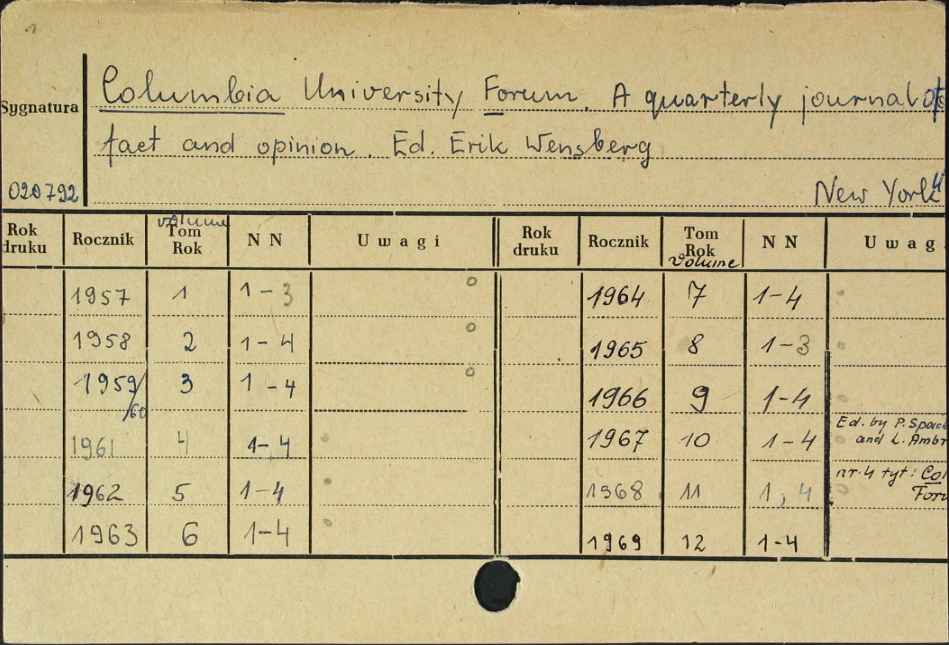 Sygnatura
Columbia University Forum. A quarterly journal of
fact and opinion. Ed. Erik Wensberg
020792
New York
Rok druku Rocznik volume Tom Rok NN Uwagi Rok druku Rocznik Tom Rok volume NN Uwag
1957 1 1-3 1964 7 1-4
1958 2 1-4 1965 8 1-3
1959/60 3 1-4 1966 9 1-4
1961 4 1-4 1967 10 1-4 Ed. by P. and L. Ambr
1962 5 1-4 1968 11 1,4 nr. 4 tyt: Col Foru
1963 6 1-4 1969 12 1-4